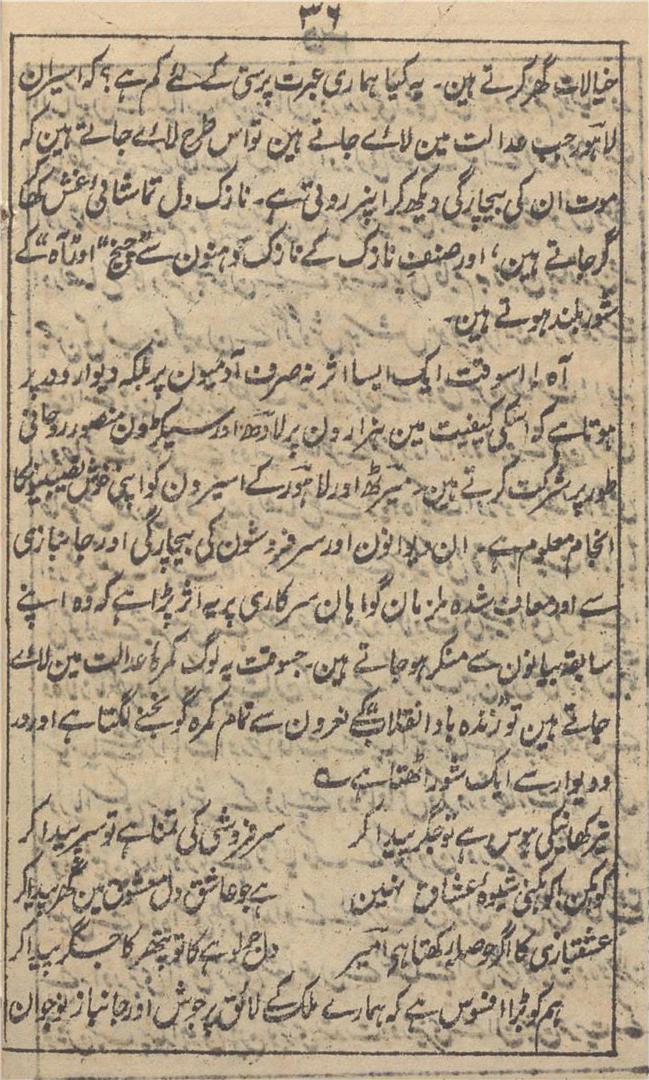 ۳۶
خیالات گھر کرتے ہین۔ یہ کیا ہماری عبرت پرستی کے لئے کم ہے؟ کہ اسیران
لاہور جب عدالت مین لائے جاتے ہین تو اس طرح لائے جاتے ہین کہ
موت ان کی بیچارگی دیکھ کر اپنر روتی ہے۔ نازک دل تماشائی غش کھا
گر جاتے ہین، اور صنف نازک کے نازک ہونٹون سے "چیخ" اور "آہ" کے
شور بلند ہوتے ہین۔
آہ! اسوقت ایک ایسا اثر نہ صرف آدمیون پر بلکہ دیوار و در پر
ہوتا ہے کہ اسکی کیفیت مین ہزارون اور سیکڑون منصور روحانی
طور پر شرکت کرتے ہین۔ میرٹھ اور لاہور کے اسیرون کو اپنی خوش نصیبیونکا
انجام معلوم ہے۔ ان دیوانون اور سرفروشون کی بیچارگی اور جانبازی
سے اور معاف شدہ ملزمان گواہان سرکاری پر یہ اثر پڑا ہے کہ وہ اپنے
سابقہ بیانون سے منکر ہو جاتے ہین۔ جسوقت یہ لوگ کمرۂ عدالت مین لائے
جاتے ہین تو "زندہ باد انقلاب" کے نعرون سے تمام کمرہ گونجنے لگتا ہے اور در
و دیوار سے ایک شور اٹھتا ہے ؎
تیر کھانیکی ہوس ہے تو جگر پیدا کر سرفروشی کی تمنا ہے تو سر پیدا کر
کوہکن کوہکنی شیوۂ عشاق نہین ہے جو عاشق دل معشوق مین گھر پیدا کر
عشقبازی کا اگر حوصلہ رکھتا ہی امیر دل جو ہے کا تو پتھر کا جگر پیدا کر
ہم کو بڑا افسوس ہے کہ ہمارے ملک کے لائق پرجوش اور جانباز نوجوان